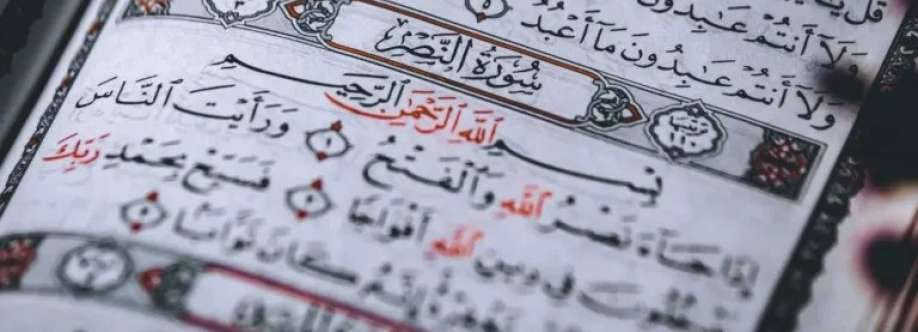 قُلْ يَـٰٓ
وَلَآ أَنتُمْ عَـٰبِدُونَ
وَلَآ أَنتُمْ عَـٰبِدُونَ مَآ أَعْبُدُ
سُورَةُ النَّصْرِ
بِسْمِ ٱللَّهِ ٱلرَّحْمَـٰنِ ٱلرَّحِيمِ
إِذَا جَآءَ نَصْرُ ٱللَّهِ وَٱلْفَتْحُ ١ وَرَأَيْتَ ٱلنَّاسَ
يَدْخُلُونَ فِى دِينِ ٱللَّهِ أَفْوَاجًا ٢ فَسَبِّحْ بِحَمْدِ رَبِّكَ
وَٱسْتَغْفِرْهُ إِنَّهُۥ كَانَ تَوَّابًۢا ٣